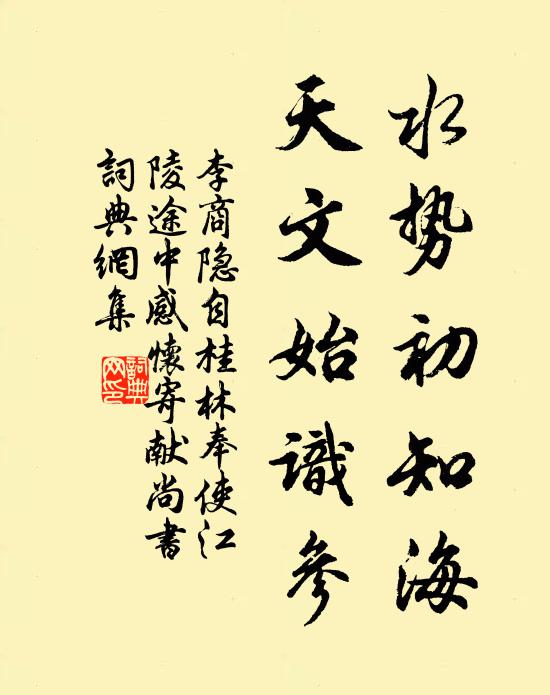 水势初知海
天文始識參
李商隐自桂林奉使江
陵途中感懷寄献尚書
詞典網集
詞典
网印